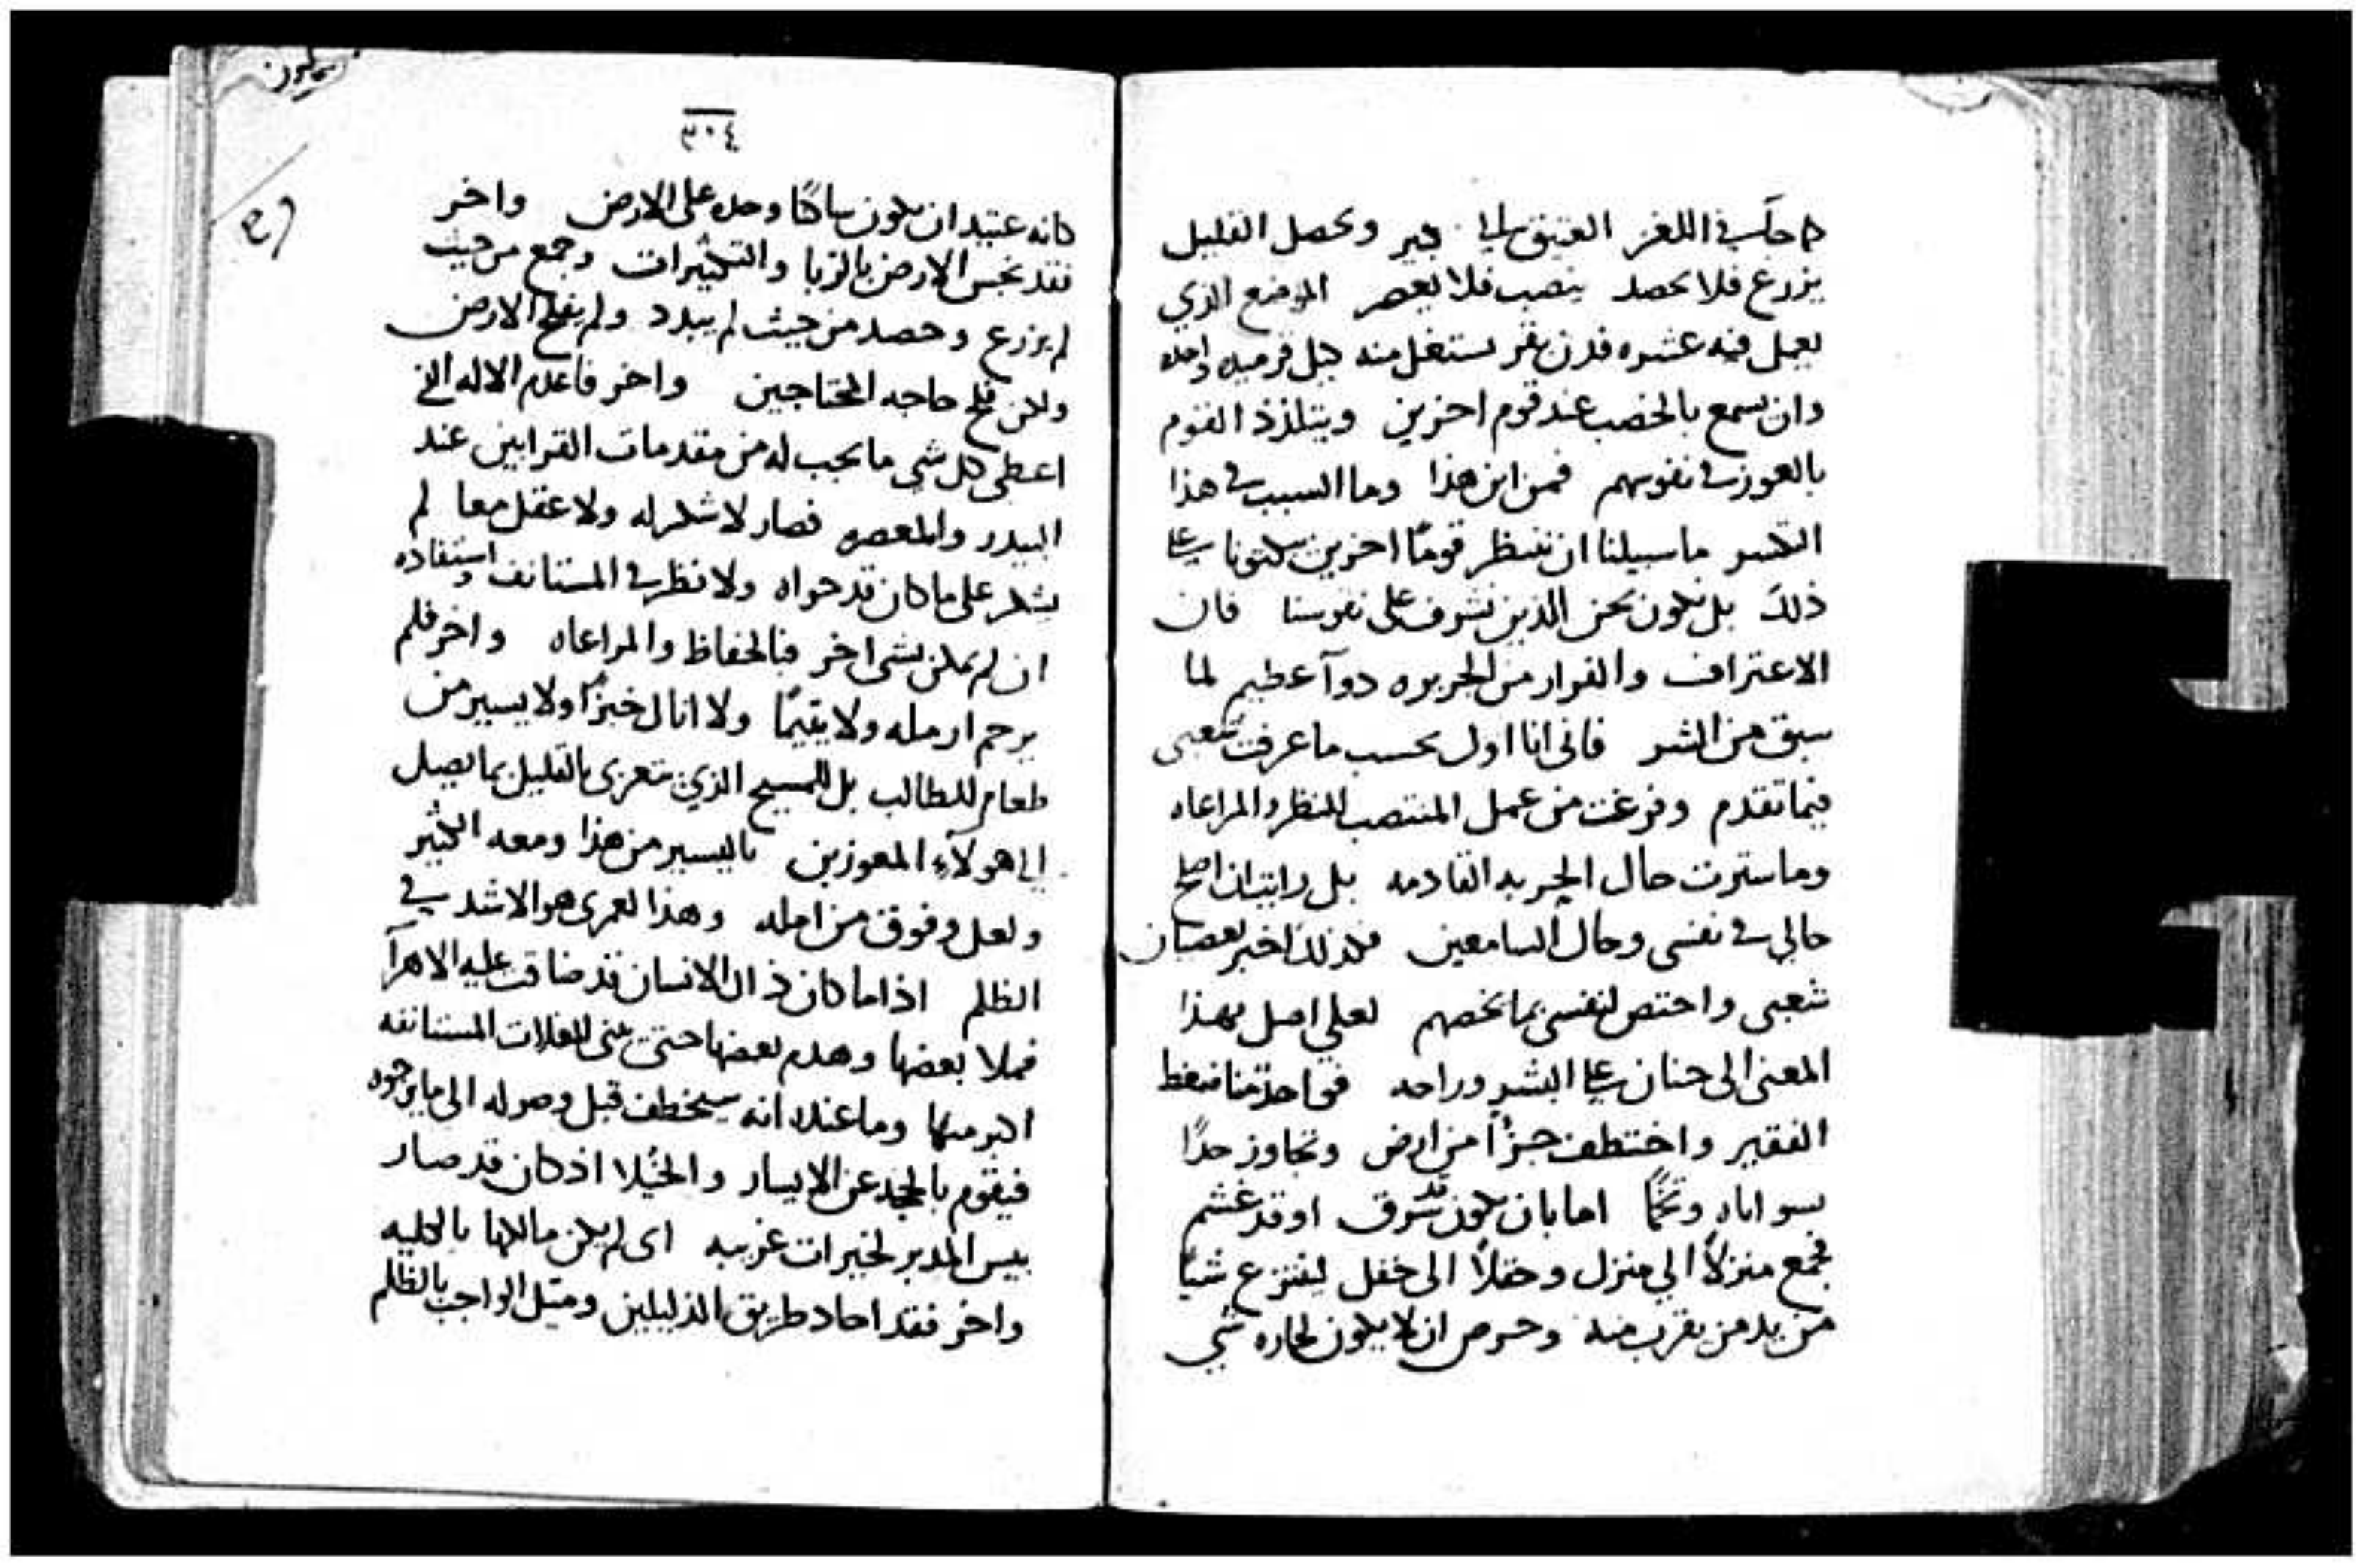 يزرع فلا يحصد ينصب فلا يعصر الموضع الذي
يعمل فيه عشره فدن بقر يستغل منه واحده
وان يسمع بالخصب عند قوم اخرين ويتلذذ القوم
بالعوز في نفوسهم فمن اين هذا وما السبب في هذا
ما سبيلنا ان ننتظر قومًا اخرين يبكتونا على
ذلك بل نكون نحن الذين نشرف على نفوسنا فان
الاعتراف والفرار من الجريره دوآ عظيم لما
سبق من الشر فاني انا اول بحسب ما عرفت شعبي
فيما تقدم وفرغت من عمل المنتصب للنظر والمراعاه
وما سترت حال الحربه القادمه بل رايت ان اصلح
حالي في نفسي وحال السامعين فلذلك اخبر بعصيان
شعبي واختص لنفسي بما يخصهم لعلي اصل بهذا
المعنى الى حنان على البشر وراحه فواحد منا ضغط
الفقير واختطف جزأً من ارض وتجاوز حدًا
بسو اياه وتخمًا اما بان يكون قد سرق او قد غشم
فجمع منزلاً الي منزل وحقلاً الى حقل لينتزع شياً
من يد من يقرب منه وحرص ان لا يكون لجاره شي
٣٠٤
كانه عتيد ان يكون ساكنًا وحده على الارض واخر
فقد نجس الارض بالربا والتكثيرات وجمع من حيث
لم يزرع وحصد من حيث لم يبدد ولم يفلح الارض
ولكن فلح حاجه المحتاجين واخر فاعدم الاله الذي
اعطى كل شي ما يجب له من مقدمات القرابين عند
البيدر والمعصره فصار لا شكر له ولا عقل معا لم
يشكر على ما كان قد حواه ولا نظر في المستانف واستفاده
ان لم يكن بشي اخر فبالحفاظ والمراعاه واخر فلم
يرحم ارمله ولا يتيمًا ولا انال خبزًا ولا يسير من
طعام للطالب بل للمسيح الذي يتعزى بالقليل بما يصل
الي هولآء المعوزين باليسير من هذا ومعه الكثير
ولعل وفوق من امله وهذا لعمري هو الاشد في
الظلم اذا ما كان ذاك الانسان قد ضاقت عليه الاهرآ
فملا بعضها وهدم بعضها حتى يبني للغلات المستانفه
اكبر منها وما عنده انه سيخطف قبل وصوله الى ما يرجوه
فيقوم بالحجه عن الايسار والخيلا اذ كان قد صار
بيس المدبر لخيرات غريبه اى لم يكن مالكها بالكليه
واخر فقد احاد طريق الذليلين وميل الواجب بالظلم